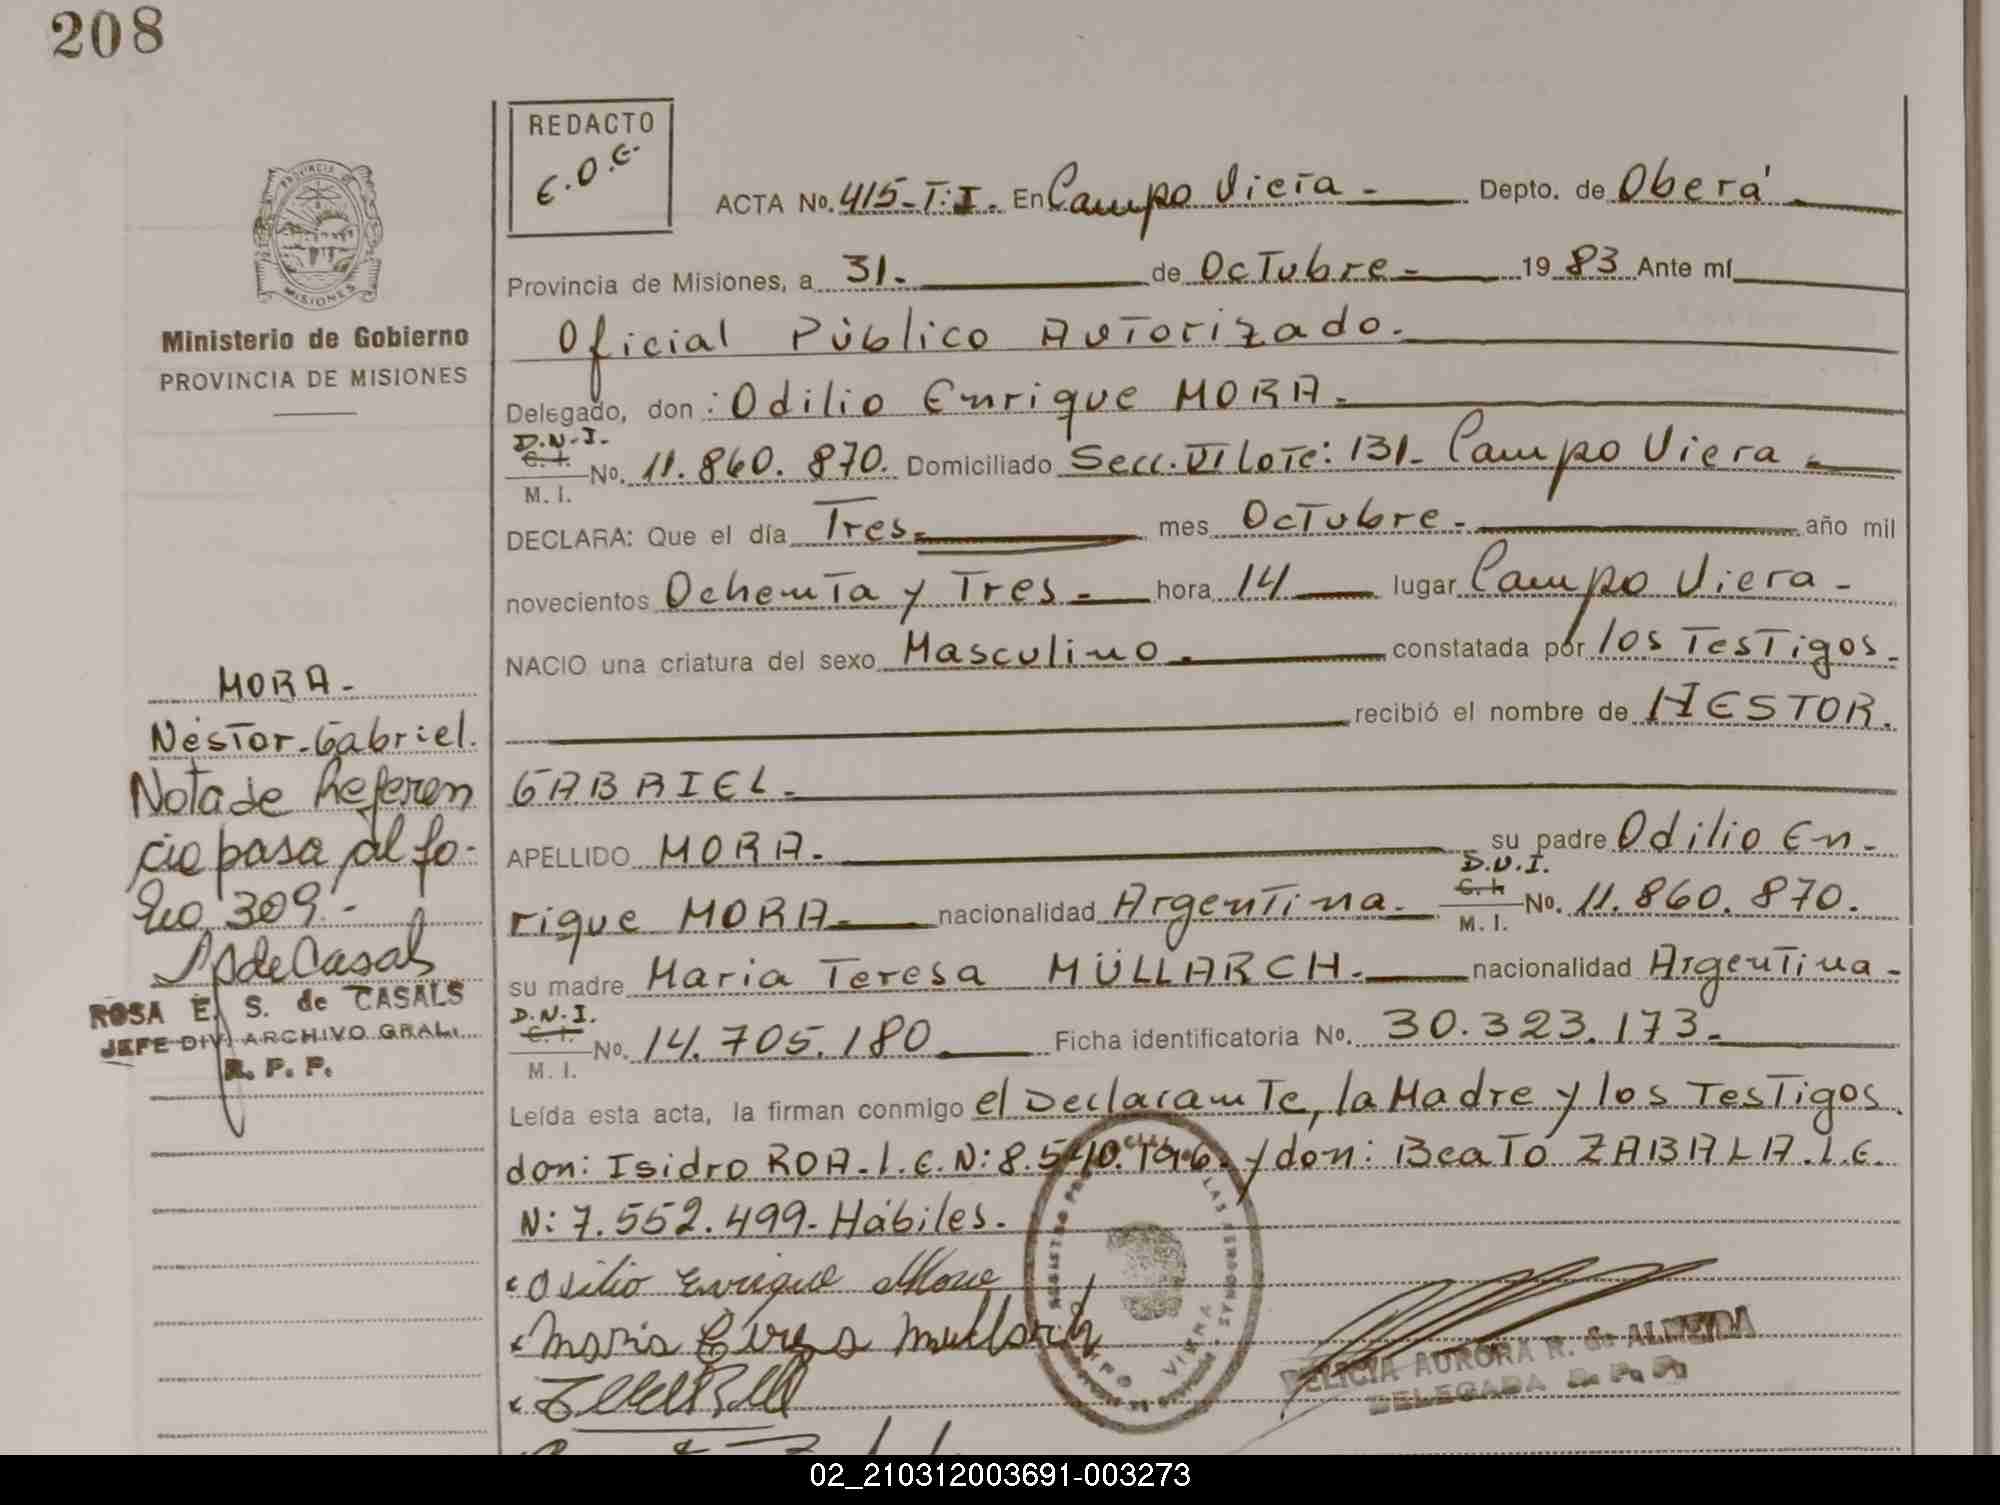 208
REDACTO
E.O.E.
ACTA No. 415-T:I. En Campo Viera - Depto. de Oberá
Provincia de Misiones, a 31. de Octubre - 19 83 Ante mí
Ministerio de Gobierno
PROVINCIA DE MISIONES
Oficial Público Autorizado.
Delegado, don : Odilio Enrique MORA.
D.N.I.
C. I.
M. I.
No. 11.860.870. Domiciliado Secc. VI Lote: 131- Campo Viera
DECLARA: Que el día Tres. mes Octubre. año mil
novecientos Ochenta y Tres - hora 14 lugar Campo Viera -
NACIO una criatura del sexo Masculino. constatada por los Testigos.
recibió el nombre de NESTOR.
GABRIEL.
APELLIDO MORA. su padre Odilio En-
rique MORA. nacionalidad Argentina. D.N.I. C. I. M. I. No. 11.860.870.
su madre Maria Teresa MÜLLARCH. nacionalidad Argentina -
D.N.I.
C. I.
M. I.
No. 14.705.180 Ficha identificatoria No. 30.323.173.
Leída esta acta, la firman conmigo el Declarante, la Madre y los Testigos
don: Isidro ROA. L.E.N: 8.540.196. y don: Beato ZABALA. L.E.
N: 7.552.499- Hábiles.
Odilio Enrique Mora
Maria Teresa Mullarch
FELICIA AURORA R. de ALMEIDA
DELEGADA R. P. P.
MORA-
Néstor-Gabriel.
Nota de Referen
cia pasa al fo-
lio 309.-
S de Casals
ROSA E. S. de CASALS
JEFE DIV. ARCHIVO GRAL.
R. P. P.
02_210312003691-003273